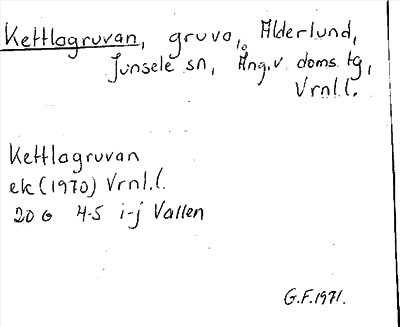 Kettlagruvan, gruva, Ålderlund,
Junsele sn, Ång.v. doms. tg,
Vrnl.l.
Kettlagruvan
ek (1970) Vrnl.l.
20 G 4-5 i-j Vallen
G.F. 1971.